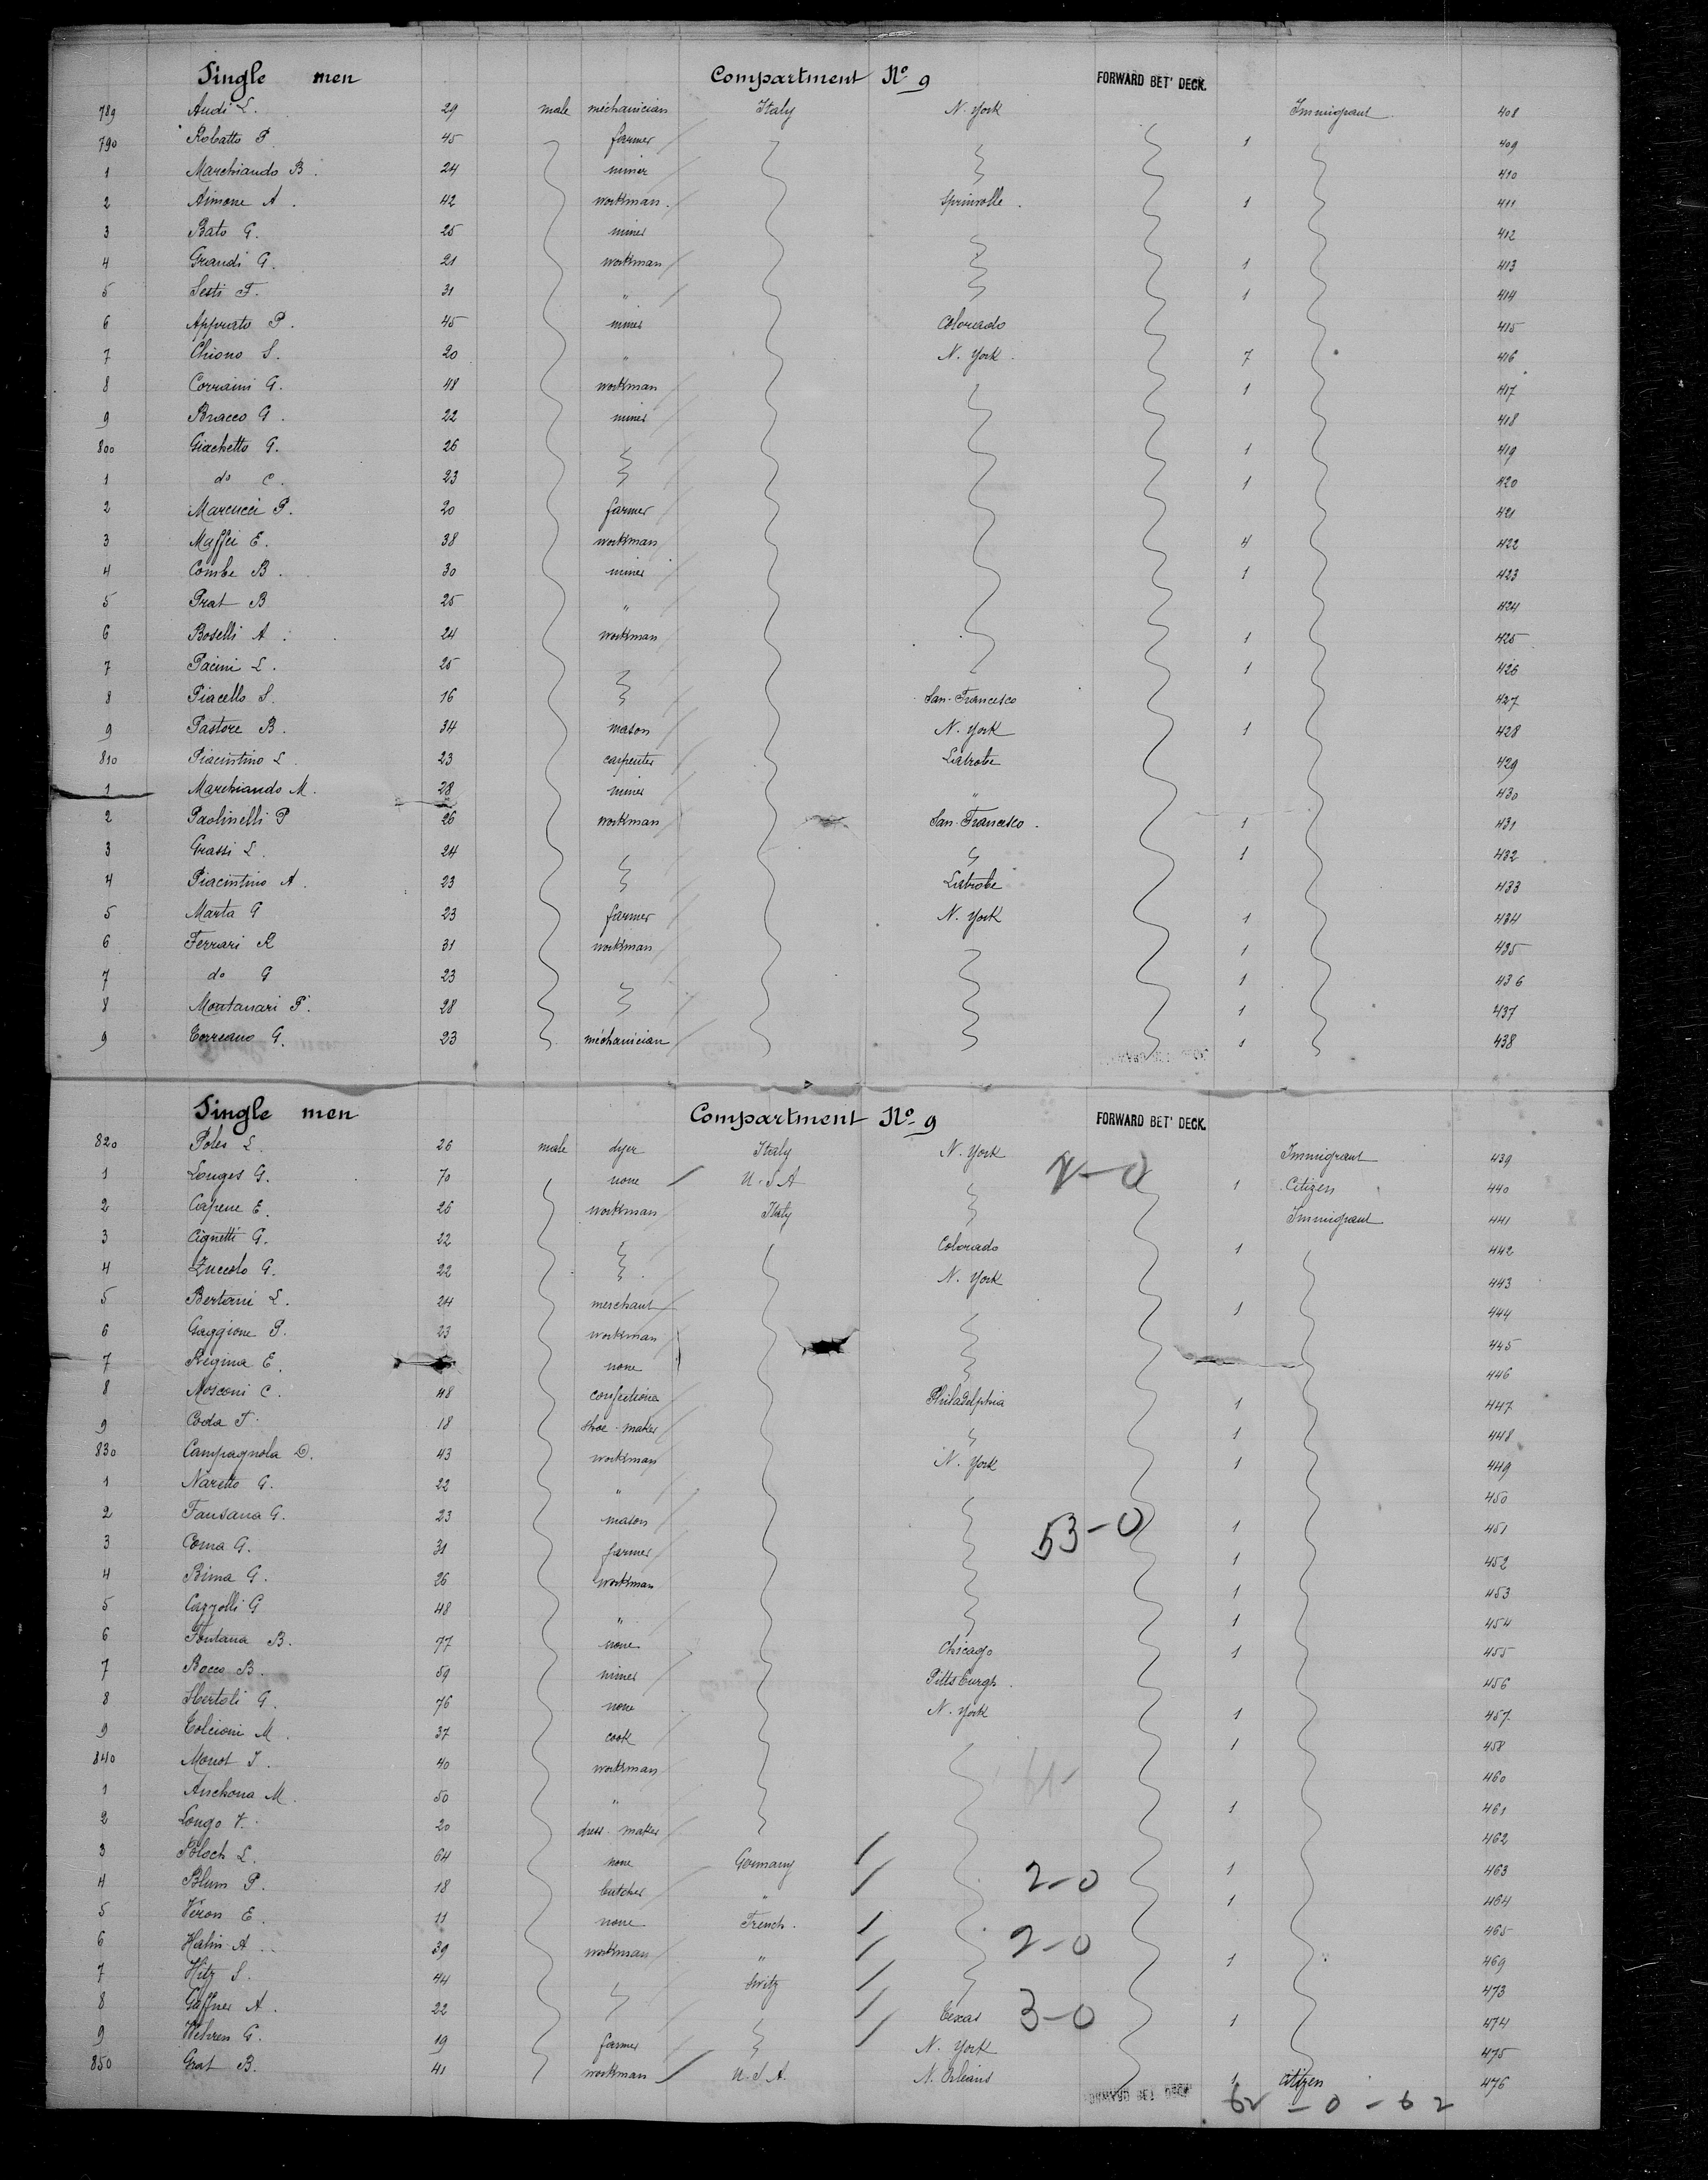 Single men Compartment No 9 FORWARD BET' DECK.
789 Audi L. 29 male méchanician Italy N. York Immigrant 408
790 Robatto P. 45 farmer 1 409
1 Marchiando B. 24 miner 410
2 Aimone A. 42 workman. 1 411
3 Bato G. 25 miner 412
4 Grandi G. 21 workman 1 413
5 Sesti F. 31 " 1 414
6 P. 45 miner Colorado 415
7 Chiono S. 20 " N. York. 7 416
8 Corraini G. 48 workman 1 417
9 Bracco G. 22 miner 418
800 Giachetto G. 26 1 419
1 do C. 23 1 420
2 Marcucci P. 20 farmer 421
3 Maffei E. 38 workman 4 422
4 Combe B. 30 miner 1 423
5 Prat B 25 " 424
6 Boselli A. 24 workman 1 425
7 Pacini L. 25 1 426
8 Piacello S. 16 San-Francisco 427
9 Pastore B. 34 mason N. York 1 428
810 Piacintino L. 23 carpenter Latrobe 429
1 Marchiando M. 28 miner " 430
2 Paolinelli P 26 workman San-Francisco. 1 431
3 Grassi L. 24 1 432
4 Piacintino A. 23 Latrobe 433
5 Marta G 23 farmer N. York 1 434
6 Ferrari R 31 workman 1 435
7 do G 23 1 436
8 Montanari P. 28 1 437
9 Torreano G. 23 méchanician 1 438
Single men Compartment No 9 FORWARD BET' DECK.
820 Poles L. 26 male dyer Italy N. York Immigrant 439
1 Longes G. 70 none U.S.A 1 Citizen 440
2 Capene E. 26 workman Italy Immigrant 441
3 Cignetti G. 22 Colorado 1 442
4 Zuccolo G. 22 N. York 443
5 Bertani L. 24 merchant 1 444
6 Gaggione P. 23 workman 445
7 Regina E. none 446
8 Mosconi C. 48 Philadelphia 1 447
9 Coda T. 18 shoe-maker 1 448
830 Campagnola D. 43 workman N. York 1 449
1 Naretto G. 22 " 450
2 Fansana G. 23 mason 53-0 1 451
3 Coma G. 31 farmer 1 452
4 Bima G. 26 workman 1 453
5 Cazzolli G 48 " 1 454
6 Fontana B. 77 none Chicago 1 455
7 Bocco B. 59 miner Pittsburgh. 456
8 G. 76 none N. York 1 457
9 Tolcioni M. 37 cook 1 458
840 Monot J. 40 workman 460
1 Anchona M. 50 " 1 461
2 Longo V. 20 dress-maker 462
3 L. 64 none Germany 1 463
4 Blum P. 18 butcher " 2-0 1 464
5 Véron E. 11 none French. 465
6 Hahn A. 39 workman " 2-0 1 469
7 Hitz S. 44 Switz 473
8 Gaffner A. 22 Texas 3-0 1 474
9 Wehren G. 19 farmer N. York 475
850 Grat B. 41 workman U.S.A. N. Orleans 1 citizen 476
62 - 0 - 62